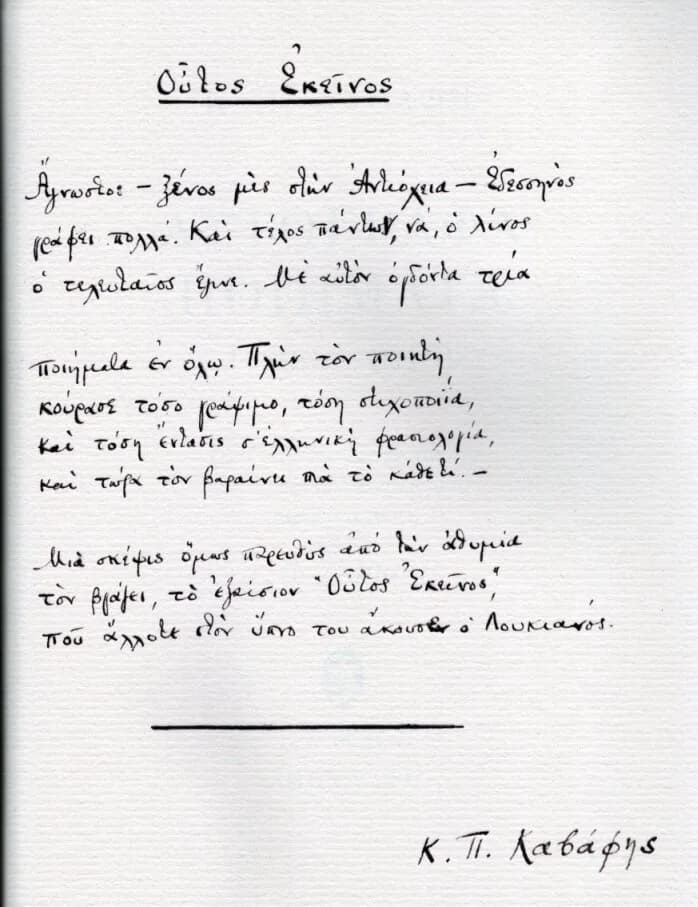 Οὗτος Ἐκεῖνος
Ἄγνωστος — ξένος μὲς στὴν Ἀντιόχεια — Ἐδεσσηνὸς
γράφει πολλά. Καὶ τέλος πάντων, νά, ὁ λίνος
ὁ τελευταῖος ἔγινε. Μὲ αὐτὸν ὀγδόντα τρία
ποιήματα ἐν ὅλῳ. Πλὴν τὸν ποιητὴ
κούρασε τόσο γράψιμο, τόση στιχοποιΐα,
καὶ τόση ἔντασις σ' ἑλληνικὴ φρασιολογία,
καὶ τώρα τὸν βαραίνει πιὰ τὸ κάθε τί. —
Μιὰ σκέψις ὅμως παρευθὺς ἀπὸ τὴν ἀθυμία
τὸν βγάζει, τὸ ἐξαίσιον "Οὗτος Ἐκεῖνος",
ποὺ ἄλλοτε στὸν ὕπνο του ἄκουσεν ὁ Λουκιανός.
Κ. Π. Καβάφης